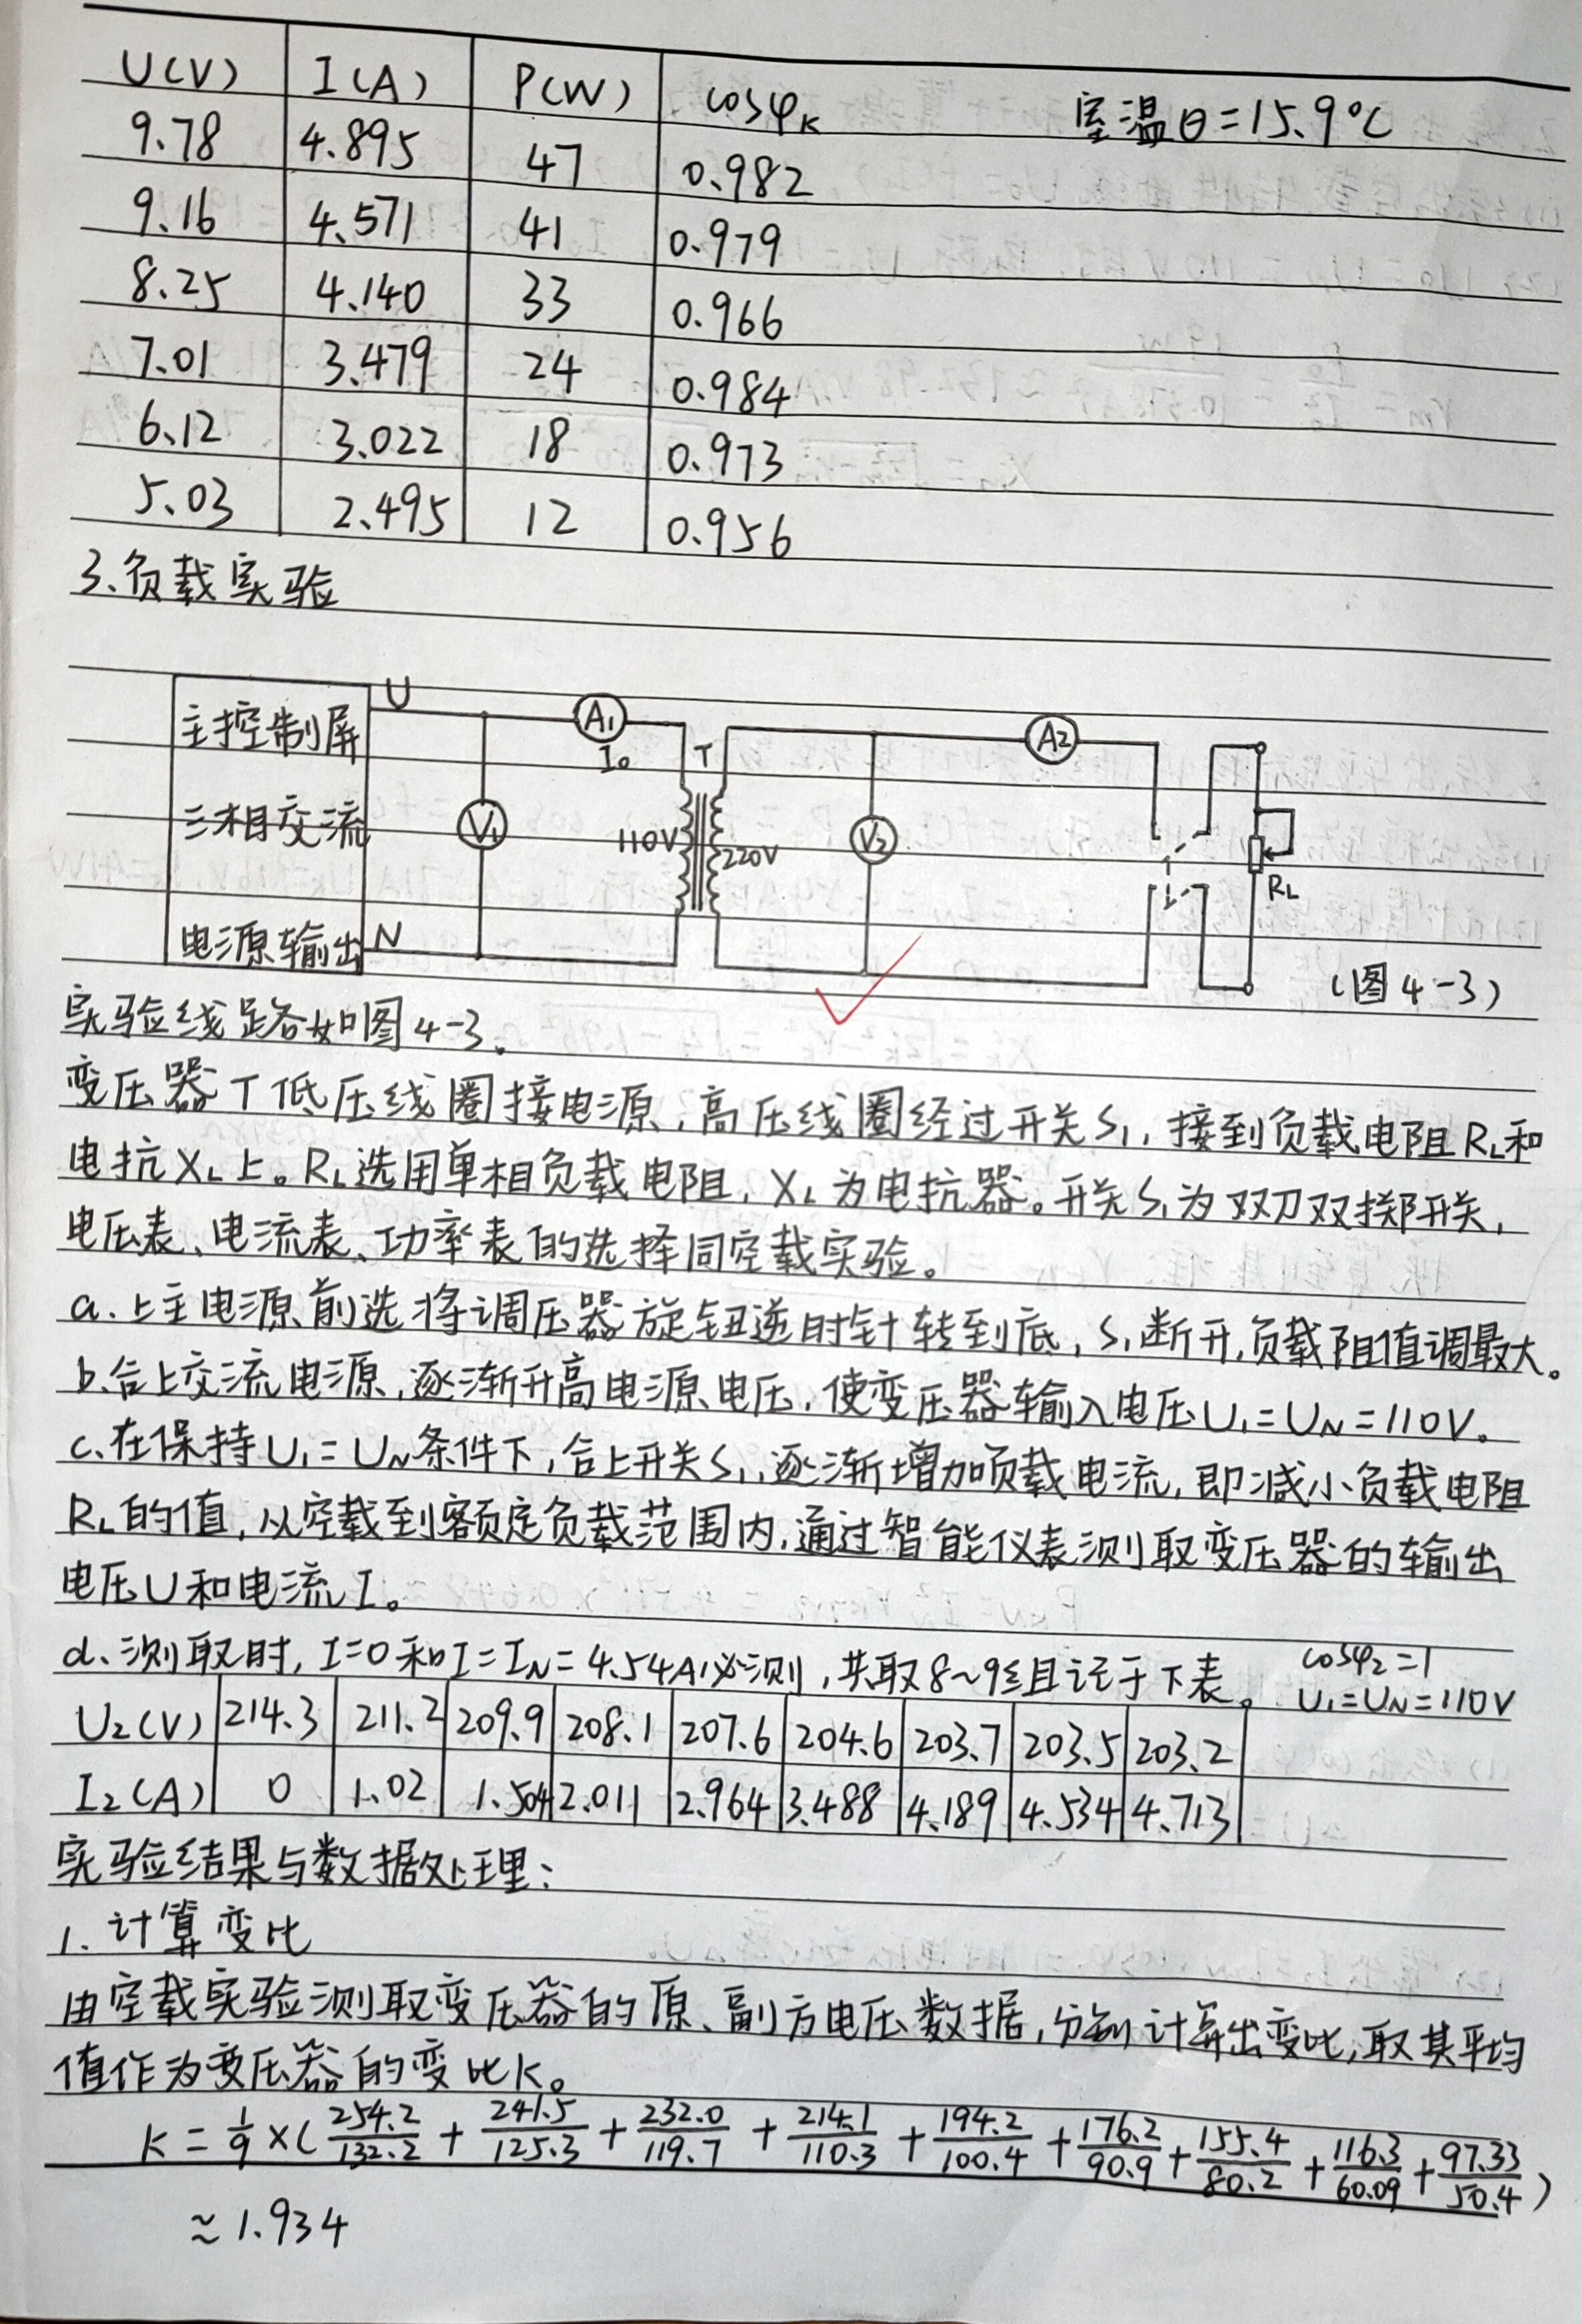 U(V) I(A) P(W) cosφK 室温θ=15.9℃
9.78 4.895 47 0.982
9.16 4.571 41 0.979
8.25 4.140 33 0.966
7.01 3.479 24 0.984
6.12 3.022 18 0.973
5.03 2.495 12 0.956
3、负载实验
主控制屏 U A1 I0 T A2
三相交流 V1 110V 220V V2 RL
电源输出 N (图4-3)
实验线路如图4-3。
变压器T低压线圈接电源,高压线圈经过开关S1,接到负载电阻RL和
电抗XL上。RL选用单相负载电阻,XL为电抗器。开关S1为双刀双掷开关,
电压表、电流表、功率表的选择同空载实验。
a.上主电源前选将调压器旋钮逆时针转到底,S1断开,负载阻值调最大。
b.合上交流电源,逐渐升高电源电压,使变压器输入电压U1=UN=110V。
c.在保持U1=UN条件下,合上开关S1,逐渐增加负载电流,即减小负载电阻
RL的值,从空载到额定负载范围内,通过智能仪表测取变压器的输出
电压U和电流I。
d、测取时,I=0和I=IN=4.54A必测,共取8~9组记于下表。 cosφ2=1
U1=UN=110V
U2(V) 214.3 211.2 209.9 208.1 207.6 204.6 203.7 203.5 203.2
I2(A) 0 1.02 1.504 2.011 2.964 3.488 4.189 4.534 4.713
实验结果与数据处理:
1.计算变比
由空载实验测取变压器的原、副方电压数据,分别计算出变比,取其平均
值作为变压器的变比K。
K = 1/9 ×( 254.2/132.2 + 241.5/125.3 + 232.0/119.7 + 214.1/110.3 + 194.2/100.4 + 176.2/90.9 + 155.4/80.2 + 116.3/60.09 + 97.33/50.4 )
≈1.934